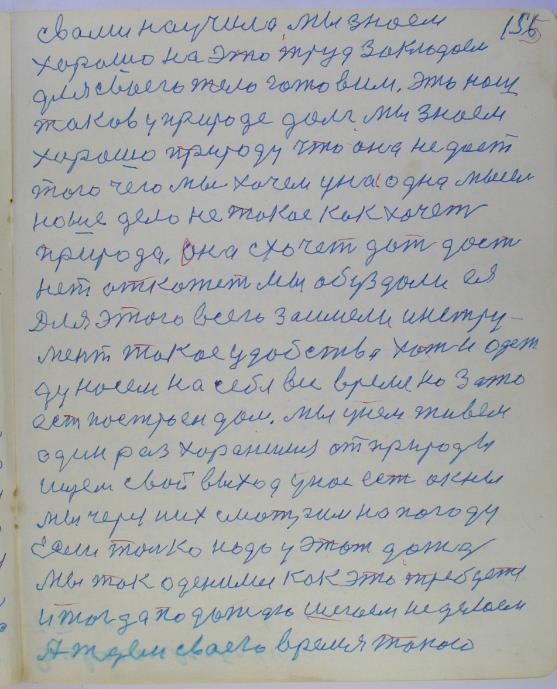 156
свами научила мы знаем
хорошо на это труд закладаем
для своего тело готовим. Это наш
таков у природе долг мы знаем
хорошо природу что она не даст
того чего мы хочем у нас одна мысел
наше дело не такое как хочет
природа, она схочет дат даст
нет откажет мы обуздали ея
Для этого всего заимели инстру-
мент такое удобства хот и одеж
ду носем на себя вие время но зато
ест построен дом. мы у нем живем
один раз хоранимся от природы
ищем свой выход у нас ест окны
мы через них смотрим на погоду
Если толко надо у этот дожд
мы так оденимся как это требует
и тогда по дождю шегаем не делаем
А ждем своего время такого